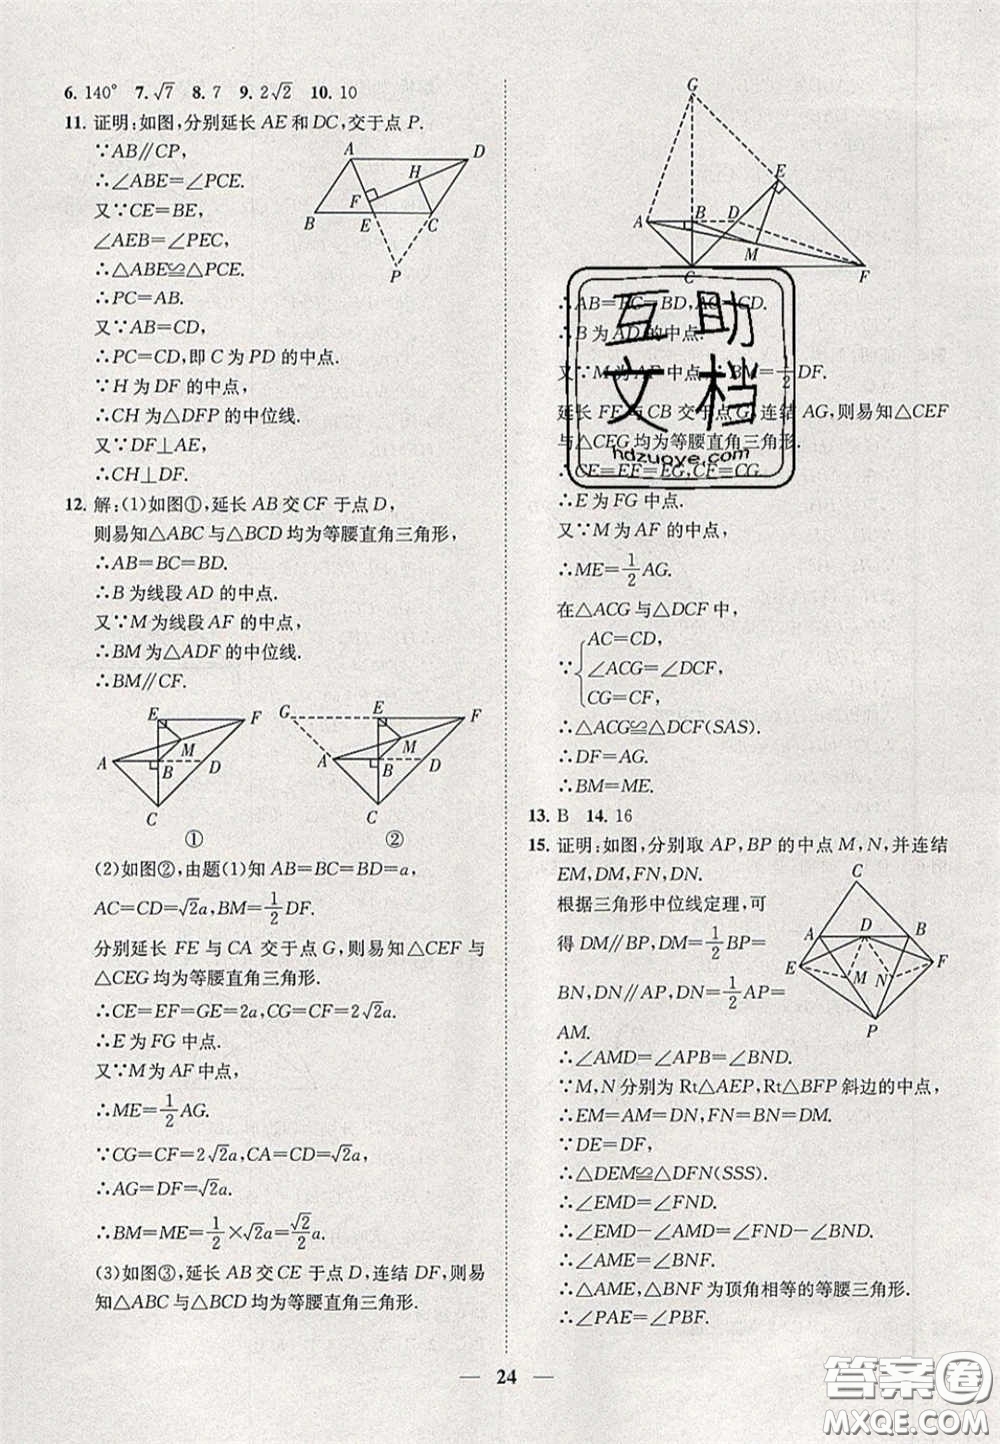 6. 140° 7. √7 8. 7 9. 2√2 10. 10
11. 证明:如图,分别延长 AE 和 DC,交于点 P.
∵AB∥CP,
∴∠ABE=∠PCE.
又∵CE=BE,
∠AEB=∠PEC,
∴△ABE≌△PCE.
∴PC=AB.
又∵AB=CD,
∴PC=CD,即 C 为 PD 的中点.
∵H 为 DF 的中点,
∴CH 为△DFP 的中位线.
又∵DF⊥AE,
∴CH⊥DF.
A
D
H
F
B
E
C
P
12. 解:(1)如图①,延长 AB 交 CF 于点 D,
则易知△ABC 与△BCD 均为等腰直角三角形,
∴AB=BC=BD.
∴B 为线段 AD 的中点.
又∵M 为线段 AF 的中点,
∴BM 为△ADF 的中位线.
∴BM∥CF.
E
F
M
A
B
D
C
①
G
E
F
M
A
B
D
C
②
(2)如图②,由题(1)知 AB=BC=BD=a,
AC=CD=√2a,BM=1/2DF.
分别延长 FE 与 CA 交于点 G,则易知△CEF 与
△CEG 均为等腰直角三角形.
∴CE=EF=GE=2a,CG=CF=2√2a.
∴E 为 FG 中点.
又∵M 为 AF 中点,
∴ME=1/2AG.
∵CG=CF=2√2a,CA=CD=√2a,
∴AG=DF=√2a.
∴BM=ME=1/2×√2a=√2/2a.
(3)如图③,延长 AB 交 CE 于点 D,连结 DF,则易
知△ABC 与△BCD 均为等腰直角三角形.
G
E
A
B
D
M
C
F
∴AB=BC=BD,AC=CD.
∴B 为 AD 的中点.
又∵M 为 AF 的中点,∴BM=1/2DF.
延长 FE 与 CB 交于点 G,连结 AG,则易知△CEF
与△CEG 均为等腰直角三角形.
∴CE=EF=EG,CF=CG.
∴E 为 FG 中点.
又∵M 为 AF 的中点,
∴ME=1/2AG.
在△ACG 与△DCF 中,
AC=CD,
∵ ∠ACG=∠DCF,
CG=CF,
∴△ACG≌△DCF(SAS).
∴DF=AG.
∴BM=ME.
13. B 14. 16
15. 证明:如图,分别取 AP,BP 的中点 M,N,并连结
EM,DM,FN,DN.
根据三角形中位线定理,可
得 DM∥BP,DM=1/2BP=
BN,DN∥AP,DN=1/2AP=
AM.
C
A
D
B
E
M
N
F
P
∴∠AMD=∠APB=∠BND.
∵M,N 分别为 Rt△AEP,Rt△BFP 斜边的中点,
∴EM=AM=DN,FN=BN=DM.
∵DE=DF,
∴△DEM≌△DFN(SSS).
∴∠EMD=∠FND.
∴∠EMD−∠AMD=∠FND−∠BND.
∴∠AME=∠BNF.
∴△AME,△BNF 为顶角相等的等腰三角形.
∴∠PAE=∠PBF.
互助
文档
hdzuoye.com
24
答案圈
MXQE.COM